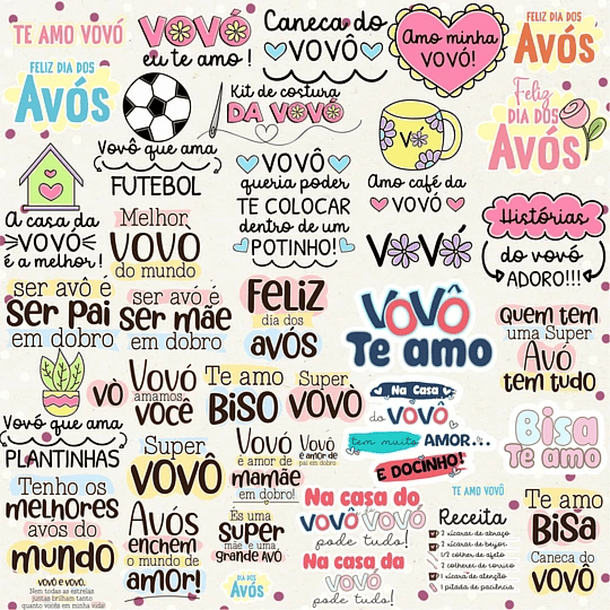 TE AMO VOVÓ
VOVÓ
eu te amo!
Caneca do
VOVÔ
Amo minha
VOVÓ!
FELIZ DIA DOS
AVÓS
FELIZ DIA DOS
AVÓS
Kit de costura
DA VOVÓ
Feliz
DIA DOS
AVÓS
Vovô que ama
FUTEBOL
VOVÔ
queria poder
TE COLOCAR
dentro de um
POTINHO!
VÓ
Amo café da
VOVÓ
A casa da
VOVÓ
é a melhor!
Melhor
VOVÔ
do mundo
VOVÓ
Histórias
do vovó
ADORO!!!
ser avô é
ser pai
em dobro
ser avó é
ser mãe
em dobro
FELIZ
dia dos
avós
VOVÔ
Te amo
quem tem
uma Super
Avó
tem tudo
vò
Vovó
amamos
você
Te amo
BISO
Super
VOVÒ
Na Casa
do VOVÔ
tem muito AMOR...
E DOCINHO!
Bisa
Te amo
Vovó que ama
PLANTINHAS
Super
VOVÔ
Vovó
é amor de
mamãe
em dobro!
Vovô
é amor de
pai em dobro
Tenho os
melhores
avos do
mundo
Avós
enchem
o mundo de
amor!
És uma
super
mãe e uma
grande AVÓ
Na casa do
VOVÔ VOVÓ
pode tudo!
Na casa da
VOVÓ
pode tudo!
TE AMO VOVÔ
Receita
2 xícaras de abraço
2 xícaras de beijos
1/2 colher de afeto
2 colheres de sorriso
1 xícara de atenção
1 pitada de paciência
Te amo
BISA
Caneca do
VOVÔ
VOVÔ E VOVÓ.
Nem todas as estrelas
juntas brilham tanto
quanto vocês em minha vida!
DIA DOS
AVÓS